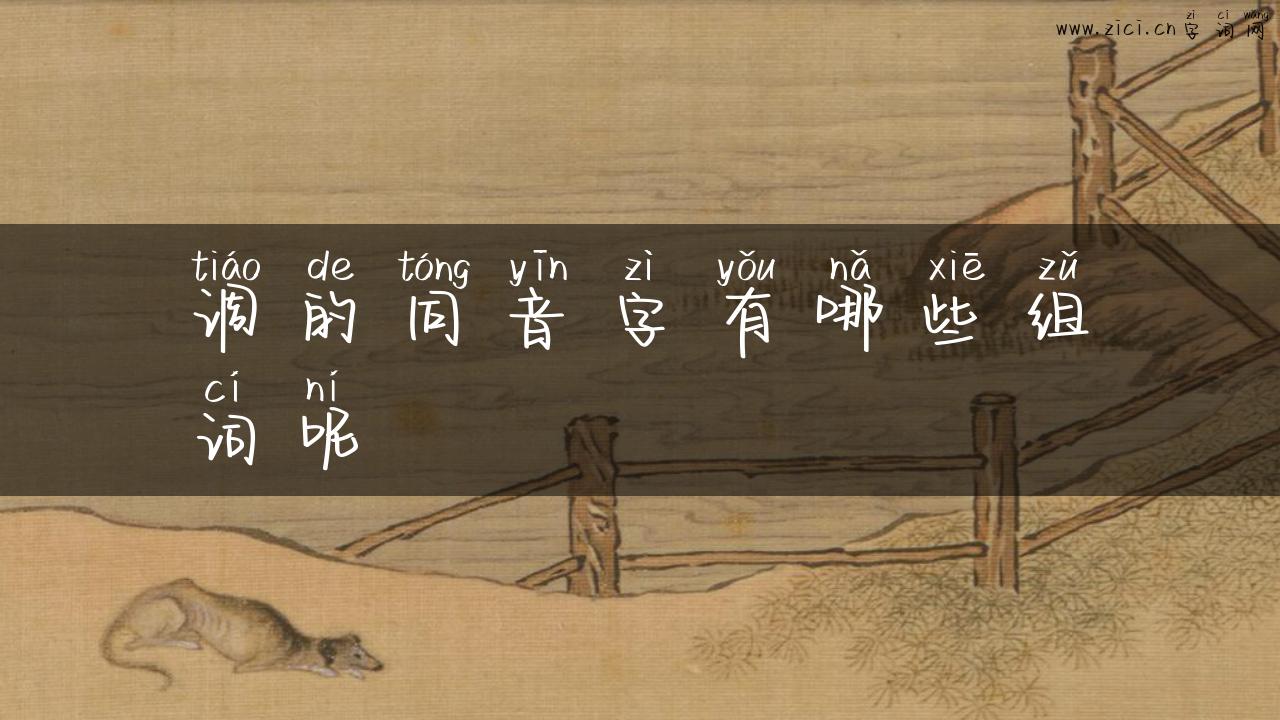 zi ci wang
www.zici.cn 字词网
tiáo de tóng yīn zì yǒu nǎ xiē zǔ
调的同音字有哪些组
cí ní
词呢